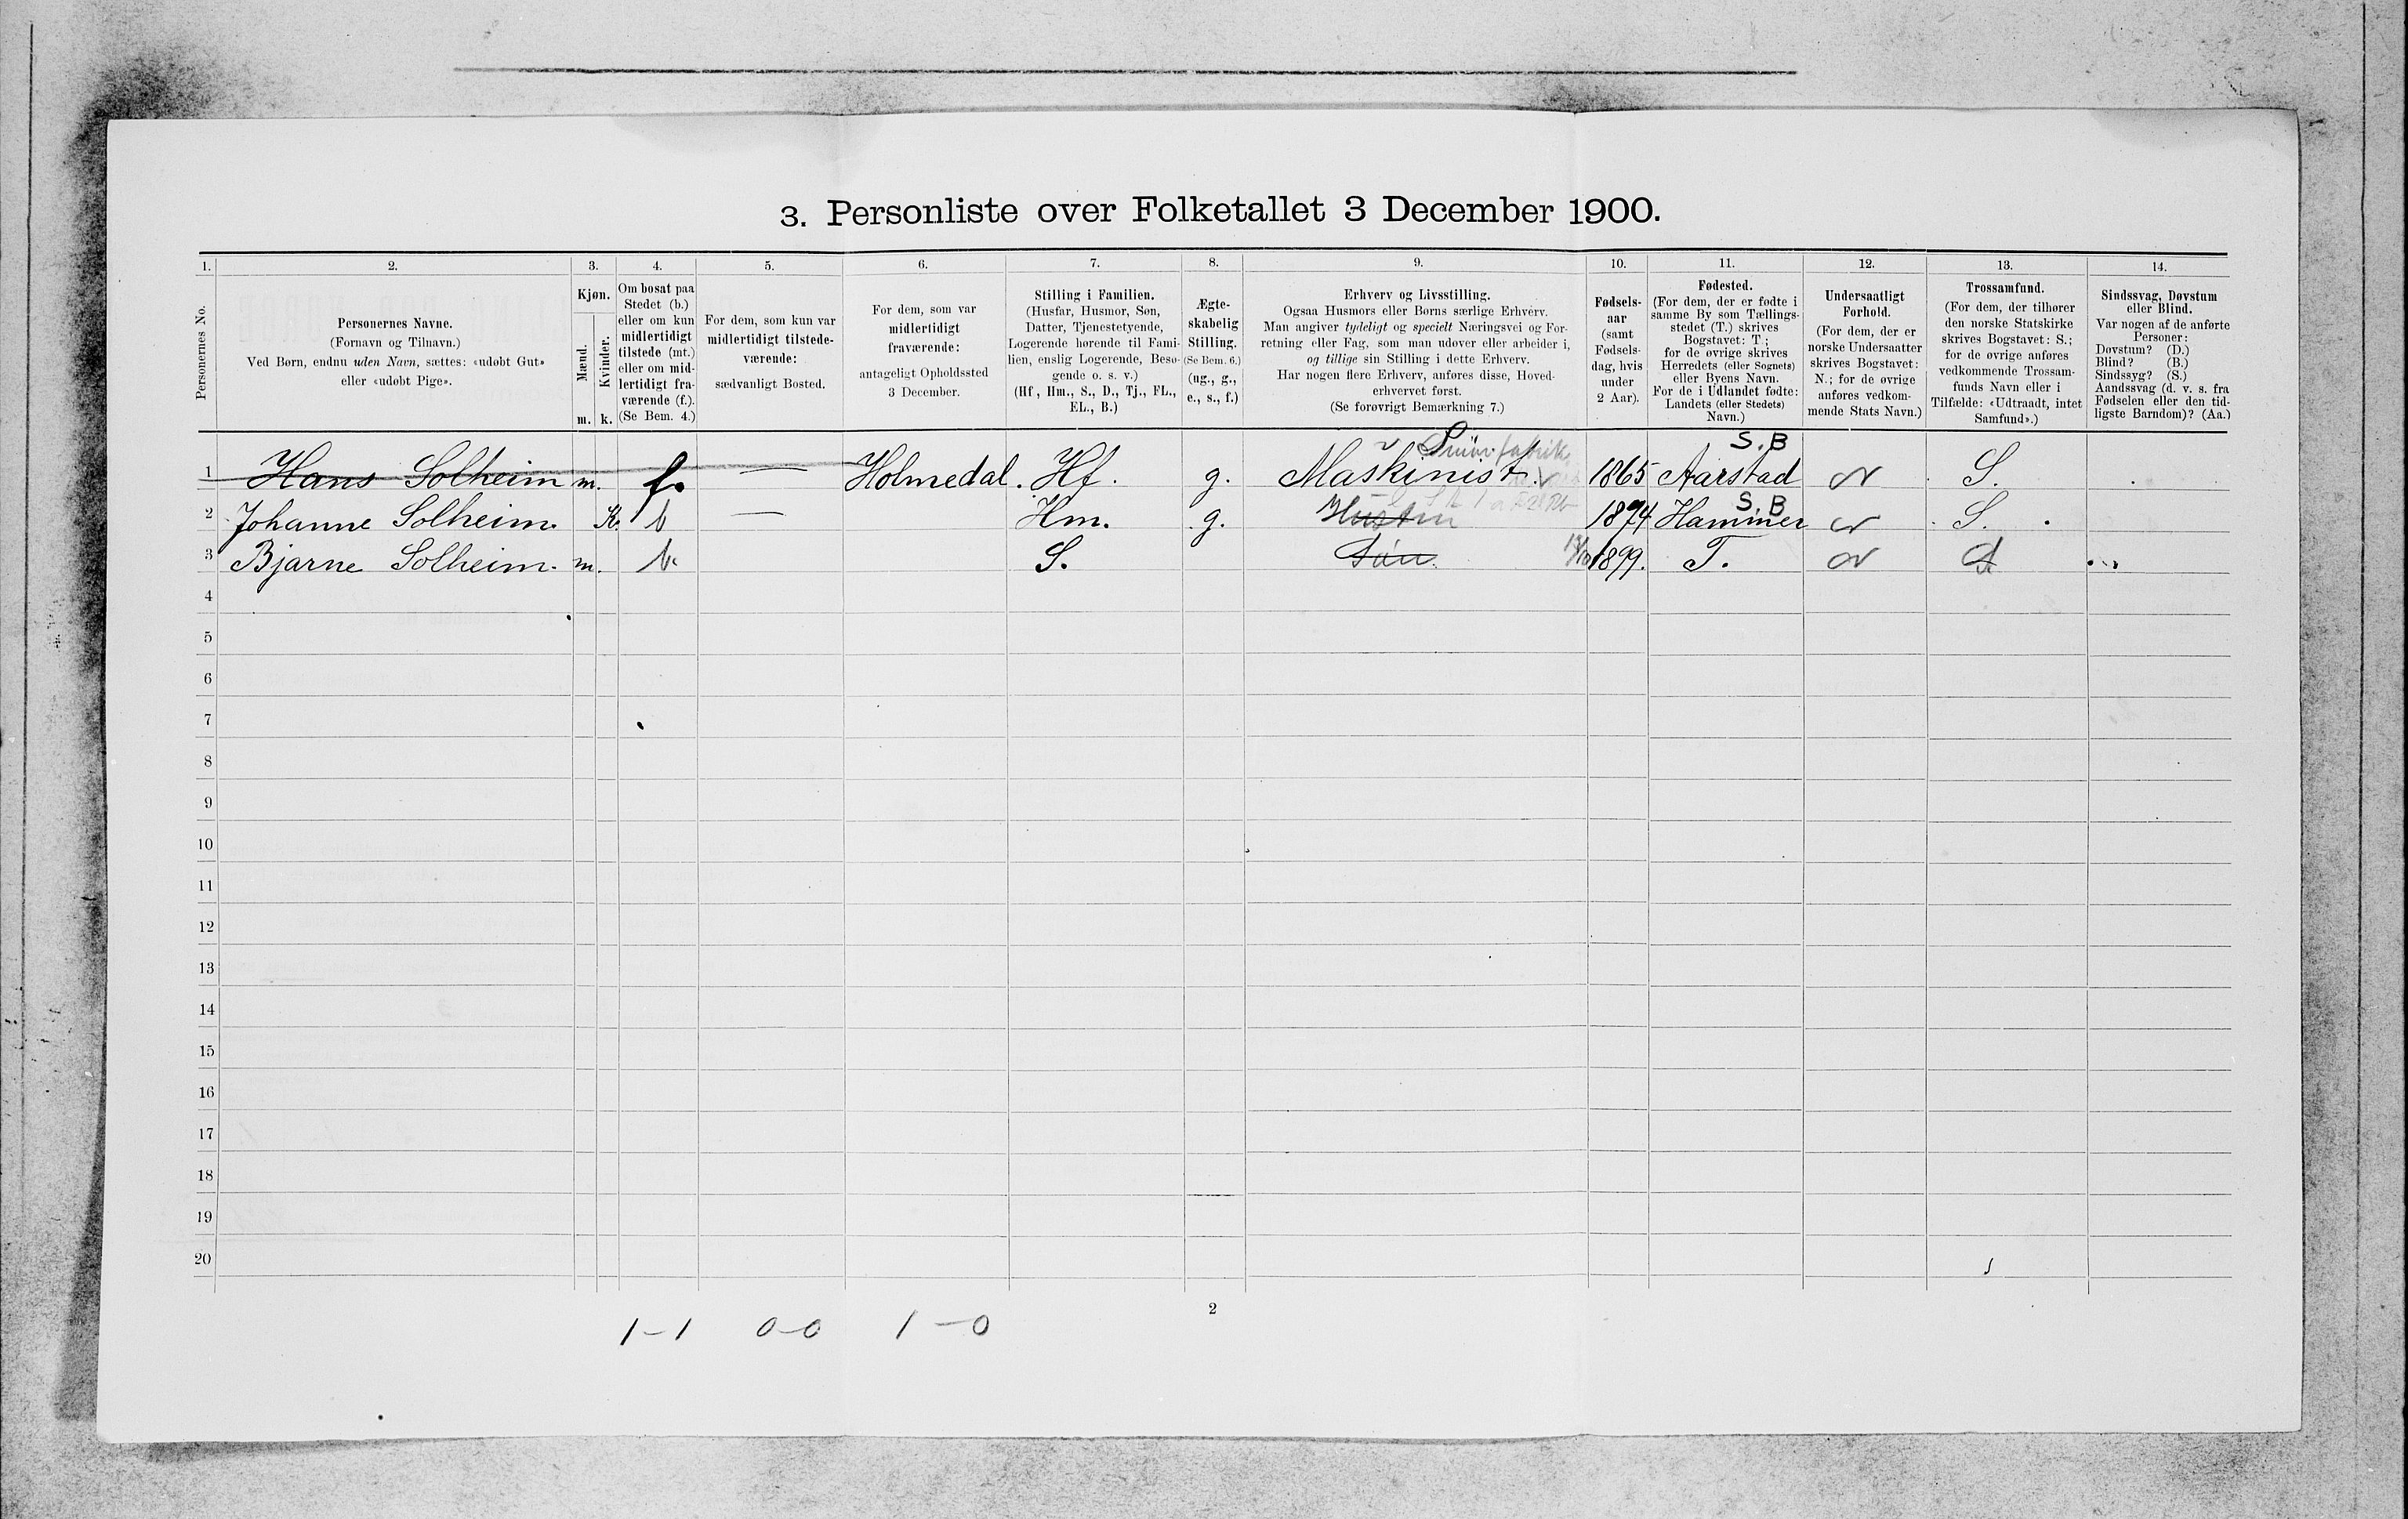 3. Personliste over Folketallet 3 December 1900.
1. 2. 3. 4. 5. 6. 7. 8. 9. 10. 11. 12. 13. 14.
Personernes No.
Personernes Navne.
(Fornavn og Tilnavn.)
Ved Børn, endnu uden Navn, sættes: «udøbt Gut»
eller «udøbt Pige».
Kjøn.
Mænd.
Kvinder.
m. k.
Om bosat paa
Stedet (b.)
eller om kun
midlertidigt
tilstede (mt.)
eller om mid-
lertidigt fra-
værende (f.).
(Se Bem. 4.)
For dem, som kun var
midlertidigt tilstede-
værende:
sædvanligt Bosted.
For dem, som var
midlertidigt
fraværende:
antageligt Opholdssted
3 December.
Stilling i Familien.
(Husfar, Husmor, Søn,
Datter, Tjenestetyende,
Logerende hørende til Fami-
lien, enslig Logerende, Besø-
gende o. s. v.)
(Hf, Hm., S., D., Tj., FL.,
EL., B.)
Ægte-
skabelig
Stilling.
(Se Bem. 6.)
(ug., g.,
e., s., f.)
Erhverv og Livsstilling.
Ogsaa Husmors eller Børns særlige Erhverv.
Man angiver tydeligt og specielt Næringsvei og For-
retning eller Fag, som man udøver eller arbeider i,
og tillige sin Stilling i dette Erhverv.
Har nogen flere Erhverv, anføres disse, Hoved-
erhvervet først.
(Se forøvrigt Bemærkning 7.)
Fødsels-
aar
(samt
Fødsels-
dag, hvis
under
2 Aar).
Fødested.
(For dem, der er fødte i
samme By som Tællings-
stedet (T.) skrives
Bogstavet: T.;
for de øvrige skrives
Herredets (eller Sognets)
eller Byens Navn.
For de i Udlandet fødte:
Landets (eller Stedets)
Navn.)
Undersaatligt
Forhold.
(For dem, der er
norske Undersaatter
skrives Bogstavet:
N.; for de øvrige
anføres vedkom-
mende Stats Navn.)
Trossamfund.
(For dem, der tilhører
den norske Statskirke
skrives Bogstavet: S.;
for de øvrige anføres
vedkommende Trossam-
funds Navn eller i
Tilfælde: «Udtraadt, intet
Samfund».)
Sindssvag, Døvstum
eller Blind.
Var nogen af de anførte
Personer:
Døvstum? (D.)
Blind? (B.)
Sindssyg? (S.)
Aandssvag (d. v. s. fra
Fødselen eller den tid-
ligste Barndom)? (Aa.)
fabrik S.B
1 Hans Solheim m. f. — Holmedal. Hf. g. Maskinist. 1865 Aarstad N S.
S B
2 Johanne Solheim. K. b — Hm. g. Hustru 1874 Hammer N S.
3 Bjarne Solheim. m. b. S. Søn. 1899. T. N S
4
5
6
7
8
9
10
11
12
13
14
15
16
17
18
19
20
2
1-1 0-0 1-0